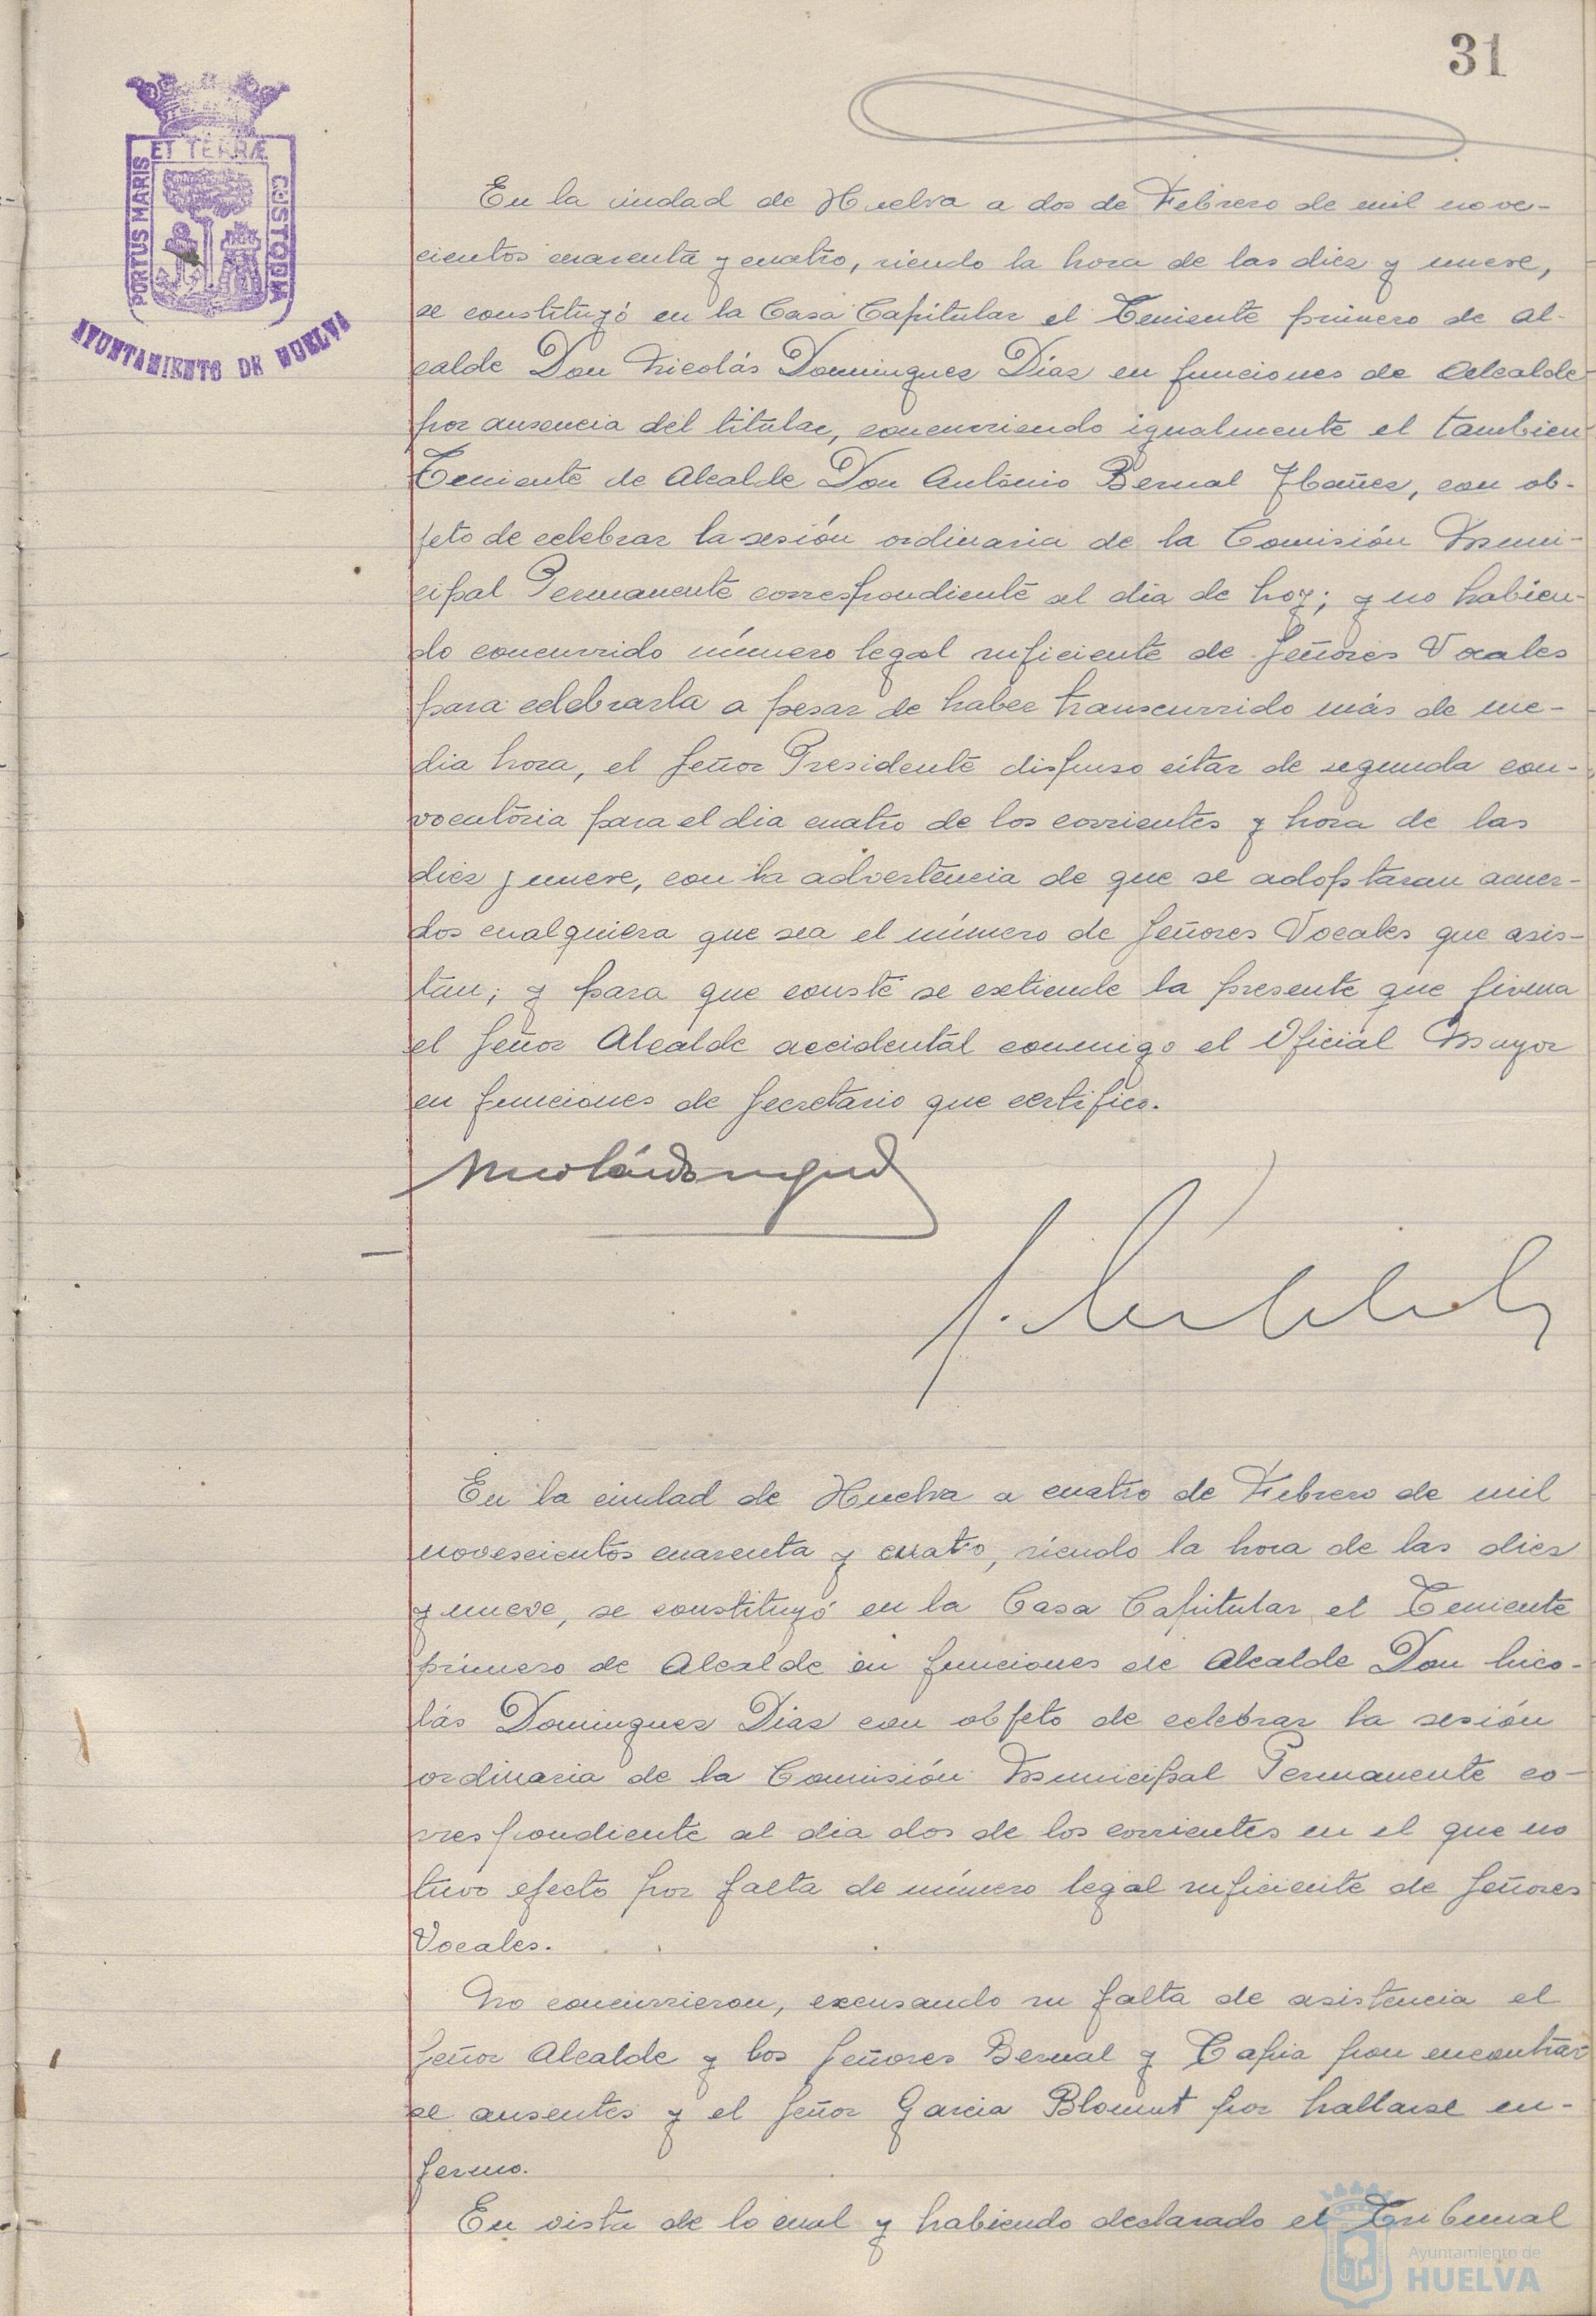 31
ET TERRÆ
PORTUS MARIS
CUSTODIA
AYUNTAMIENTO DE HUELVA
En la ciudad de Huelva a dos de Febrero de mil nove-
cientos cuarenta y cuatro, siendo la hora de las diez y nueve,
se constituyó en la Casa Capitular el Teniente primero de Al-
calde Don Nicolás Dominguez Díaz en funciones de Alcalde
por ausencia del titular, concurriendo igualmente el tambien
Teniente de Alcalde Don Antonio Bernal Ybañez, con ob-
jeto de celebrar la sesión ordinaria de la Comisión Muni-
cipal Permanente correspondiente al dia de hoy; y no habien-
do concurrido número legal suficiente de Señores Vocales
para celebrarla a pesar de haber transcurrido más de me-
dia hora, el Señor Presidente dispuso citar de segunda con-
vocatoria para el dia cuatro de los corrientes y hora de las
diez y nueve, con la advertencia de que se adoptaran acuer-
dos cualquiera que sea el número de Señores Vocales que asis-
tan; y para que conste se extiende la presente que firma
el Señor Alcalde accidental conmigo el Oficial Mayor
en funciones de Secretario que certifico.
En la ciudad de Huelva a cuatro de Febrero de mil
novescientos cuarenta y cuatro, siendo la hora de las diez
y nueve, se constituyó en la Casa Capitular el Teniente
primero de Alcalde en funciones de Alcalde Don Nico-
lás Dominguez Diaz con objeto de celebrar la sesión
ordinaria de la Comisión Municipal Permanente co-
rrespondiente al dia dos de los corrientes en el que no
tuvo efecto por falta de número legal suficiente de Señores
Vocales.
No concurrieron, excusando su falta de asistencia el
Señor Alcalde y los Señores Bernal y Tapia por encontrar
se ausentes y el Señor Garcia Blomut por hallarse en-
fermo.
En vista de lo cual y habiendo declarado el Tribunal
Ayuntamiento de
HUELVA